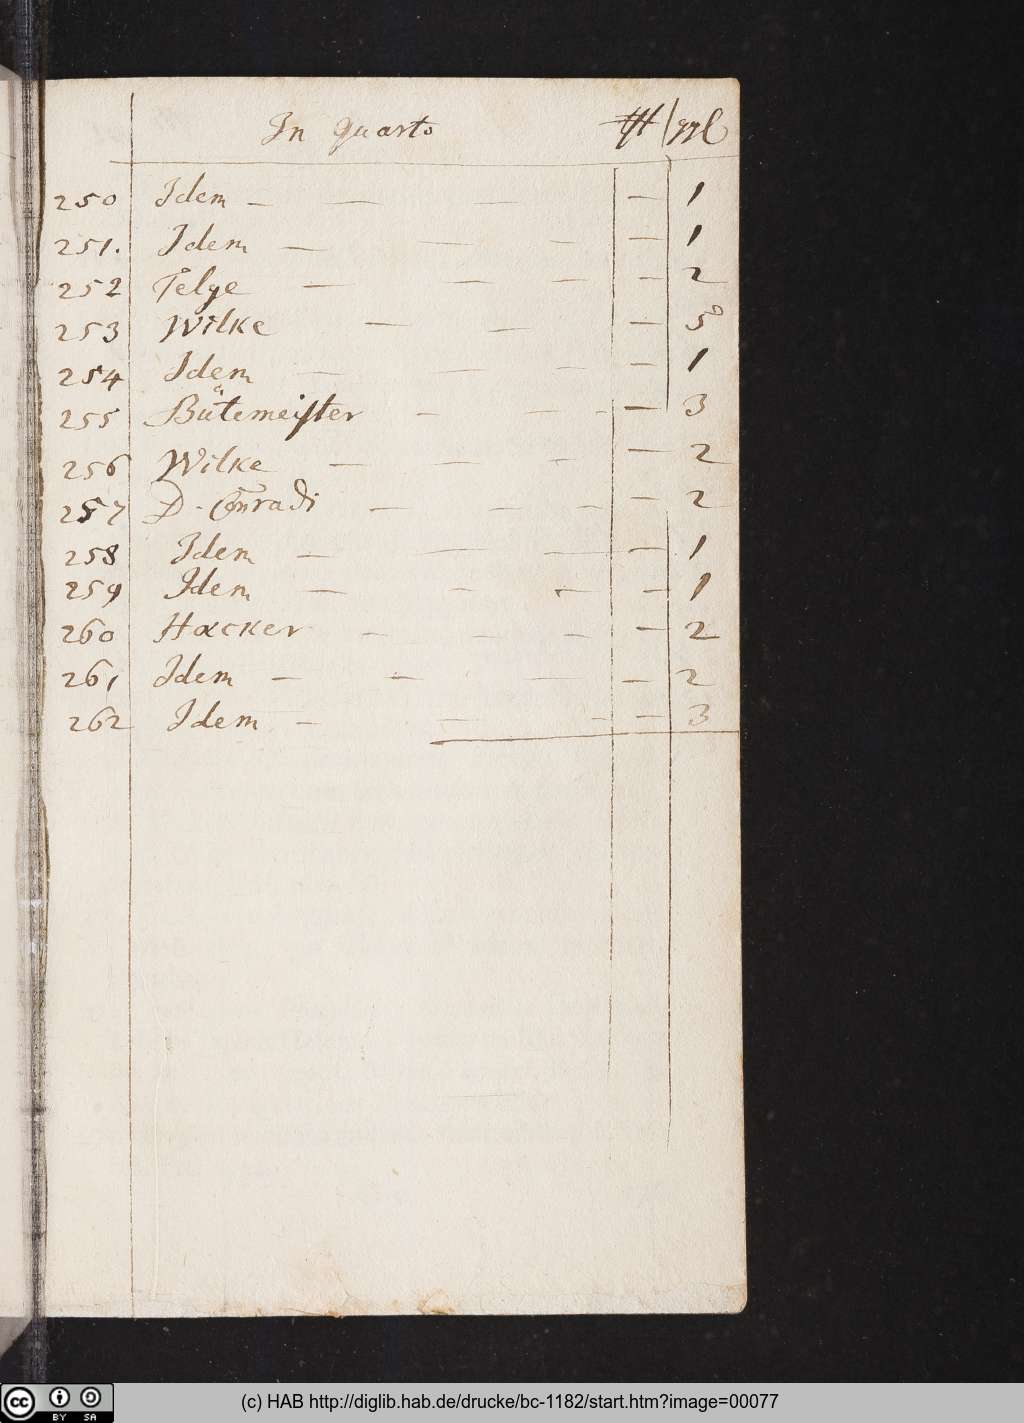 In Quarto ggl
250 Idem — — — — 1
251. Idem — — — — 1
252 Telge — — — — 2
253 Wilke — — — 5
254 Idem — — — — 1
255 Bütemeister — — — — 3
256 Wilke — — — — 2
257 D. Conradi — — — — 2
258 Idem — — — — 1
259 Idem — — — — 1
260 Hacker — — — — 2
261 Idem — — — — 2
262 Idem — — — — 3
(c) HAB http://diglib.hab.de/drucke/bc-1182/start.htm?image=00077
cc BY SA